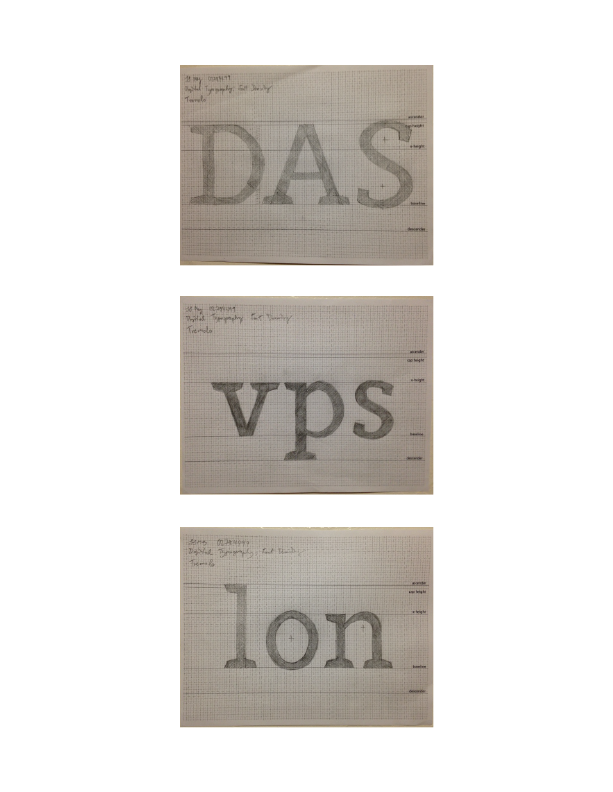 Digital Typography: Font Drawing
Tremolo
ascender
cap height
x-height
DAS
baseline
descender
Digital Typography: Font Drawing
Tremolo
ascender
cap height
x-height
vps
baseline
descender
Digital Typography: Font Drawing
Tremolo
ascender
cap height
x-height
lon
baseline
descender